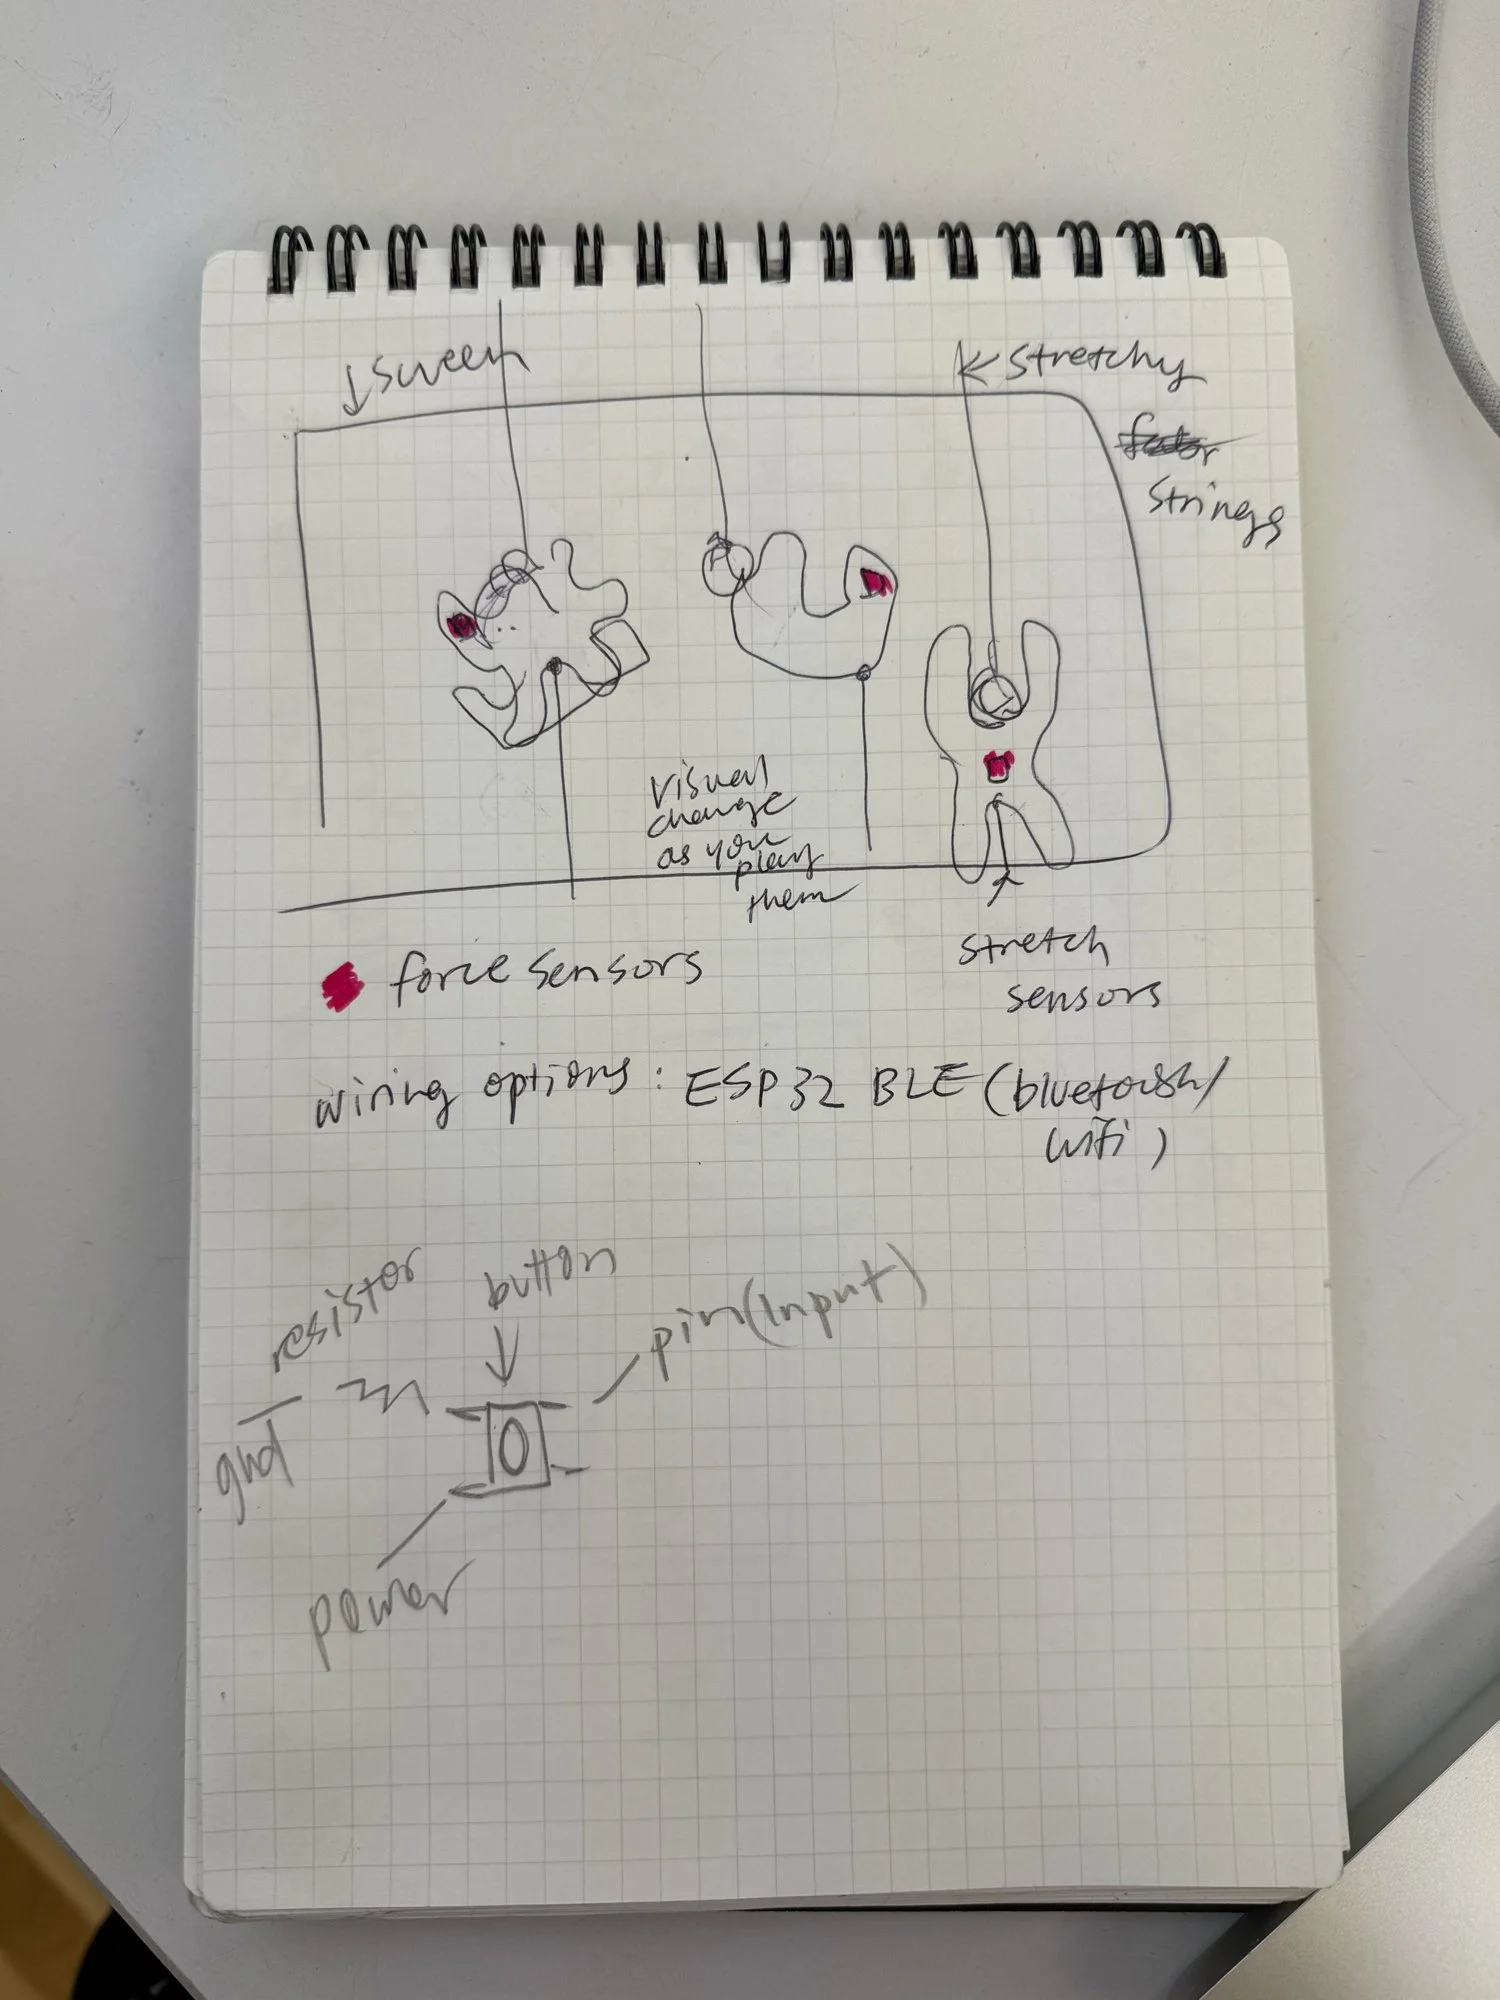 ↓ screen
← stretchy
strings
visual
change
as you
play
them
force sensors
stretch
sensors
wiring options: ESP32 BLE (bluetooth/
wifi)
resistor
button
pin(Input)
gnd
power